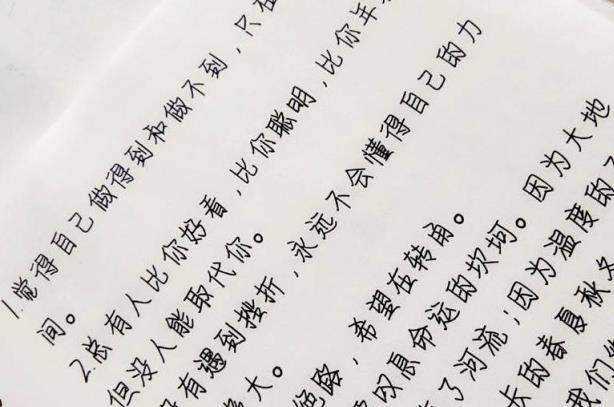 1.觉得自己做得到和做不到，只在
间。
2.总有人比你好看，比你聪明，比你年
但没人能取代你。
有遇到挫折，永远不会懂得自己的力
大。
绝路，希望在转角。
叹息命运的坎坷。因为大地
了河流；因为温度的
长的春夏秋冬
我们